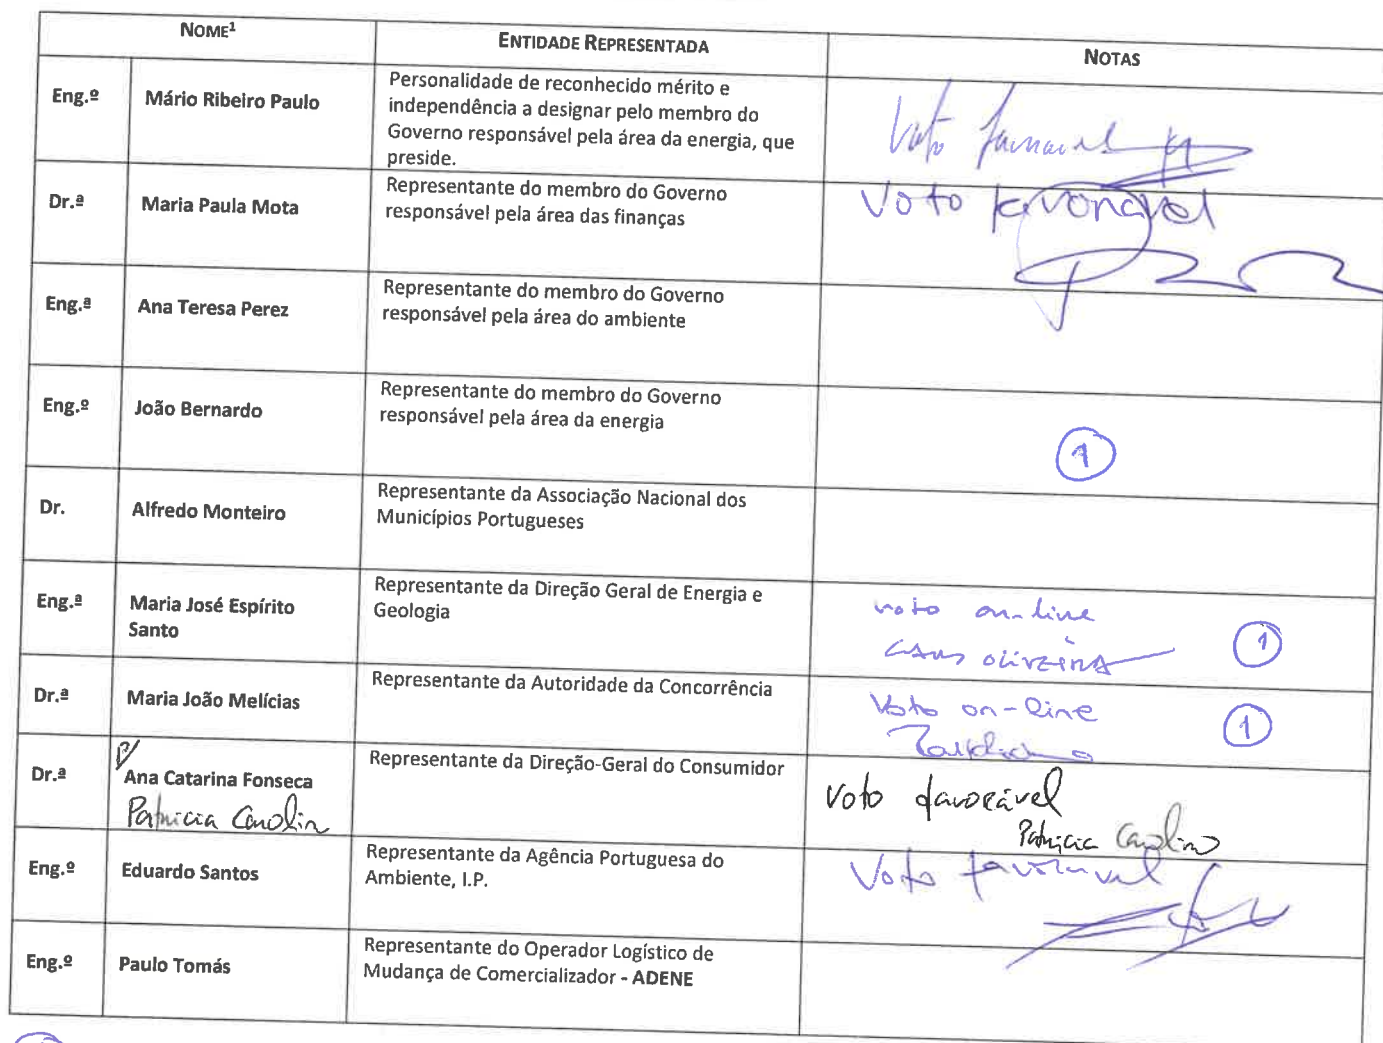 NOME¹ ENTIDADE REPRESENTADA NOTAS
Eng.º Mário Ribeiro Paulo
Personalidade de reconhecido mérito e
independência a designar pelo membro do
Governo responsável pela área da energia, que
preside.
Voto favorável
Dr.ª Maria Paula Mota
Representante do membro do Governo
responsável pela área das finanças
Voto favorável
Eng.ª Ana Teresa Perez
Representante do membro do Governo
responsável pela área do ambiente
Eng.º João Bernardo
Representante do membro do Governo
responsável pela área da energia
1
Dr. Alfredo Monteiro
Representante da Associação Nacional dos
Municípios Portugueses
Eng.ª Maria José Espírito
Santo
Representante da Direção Geral de Energia e
Geologia
voto on-line
oliveira
1
Dr.ª Maria João Melícias
Representante da Autoridade da Concorrência
Voto on-line
1
Dr.ª Ana Catarina Fonseca
Patricia Carolino
Representante da Direção-Geral do Consumidor
Voto favorável
Patricia Carolino
Eng.º Eduardo Santos
Representante da Agência Portuguesa do
Ambiente, I.P.
Voto favorável
Eng.º Paulo Tomás
Representante do Operador Logístico de
Mudança de Comercializador - ADENE